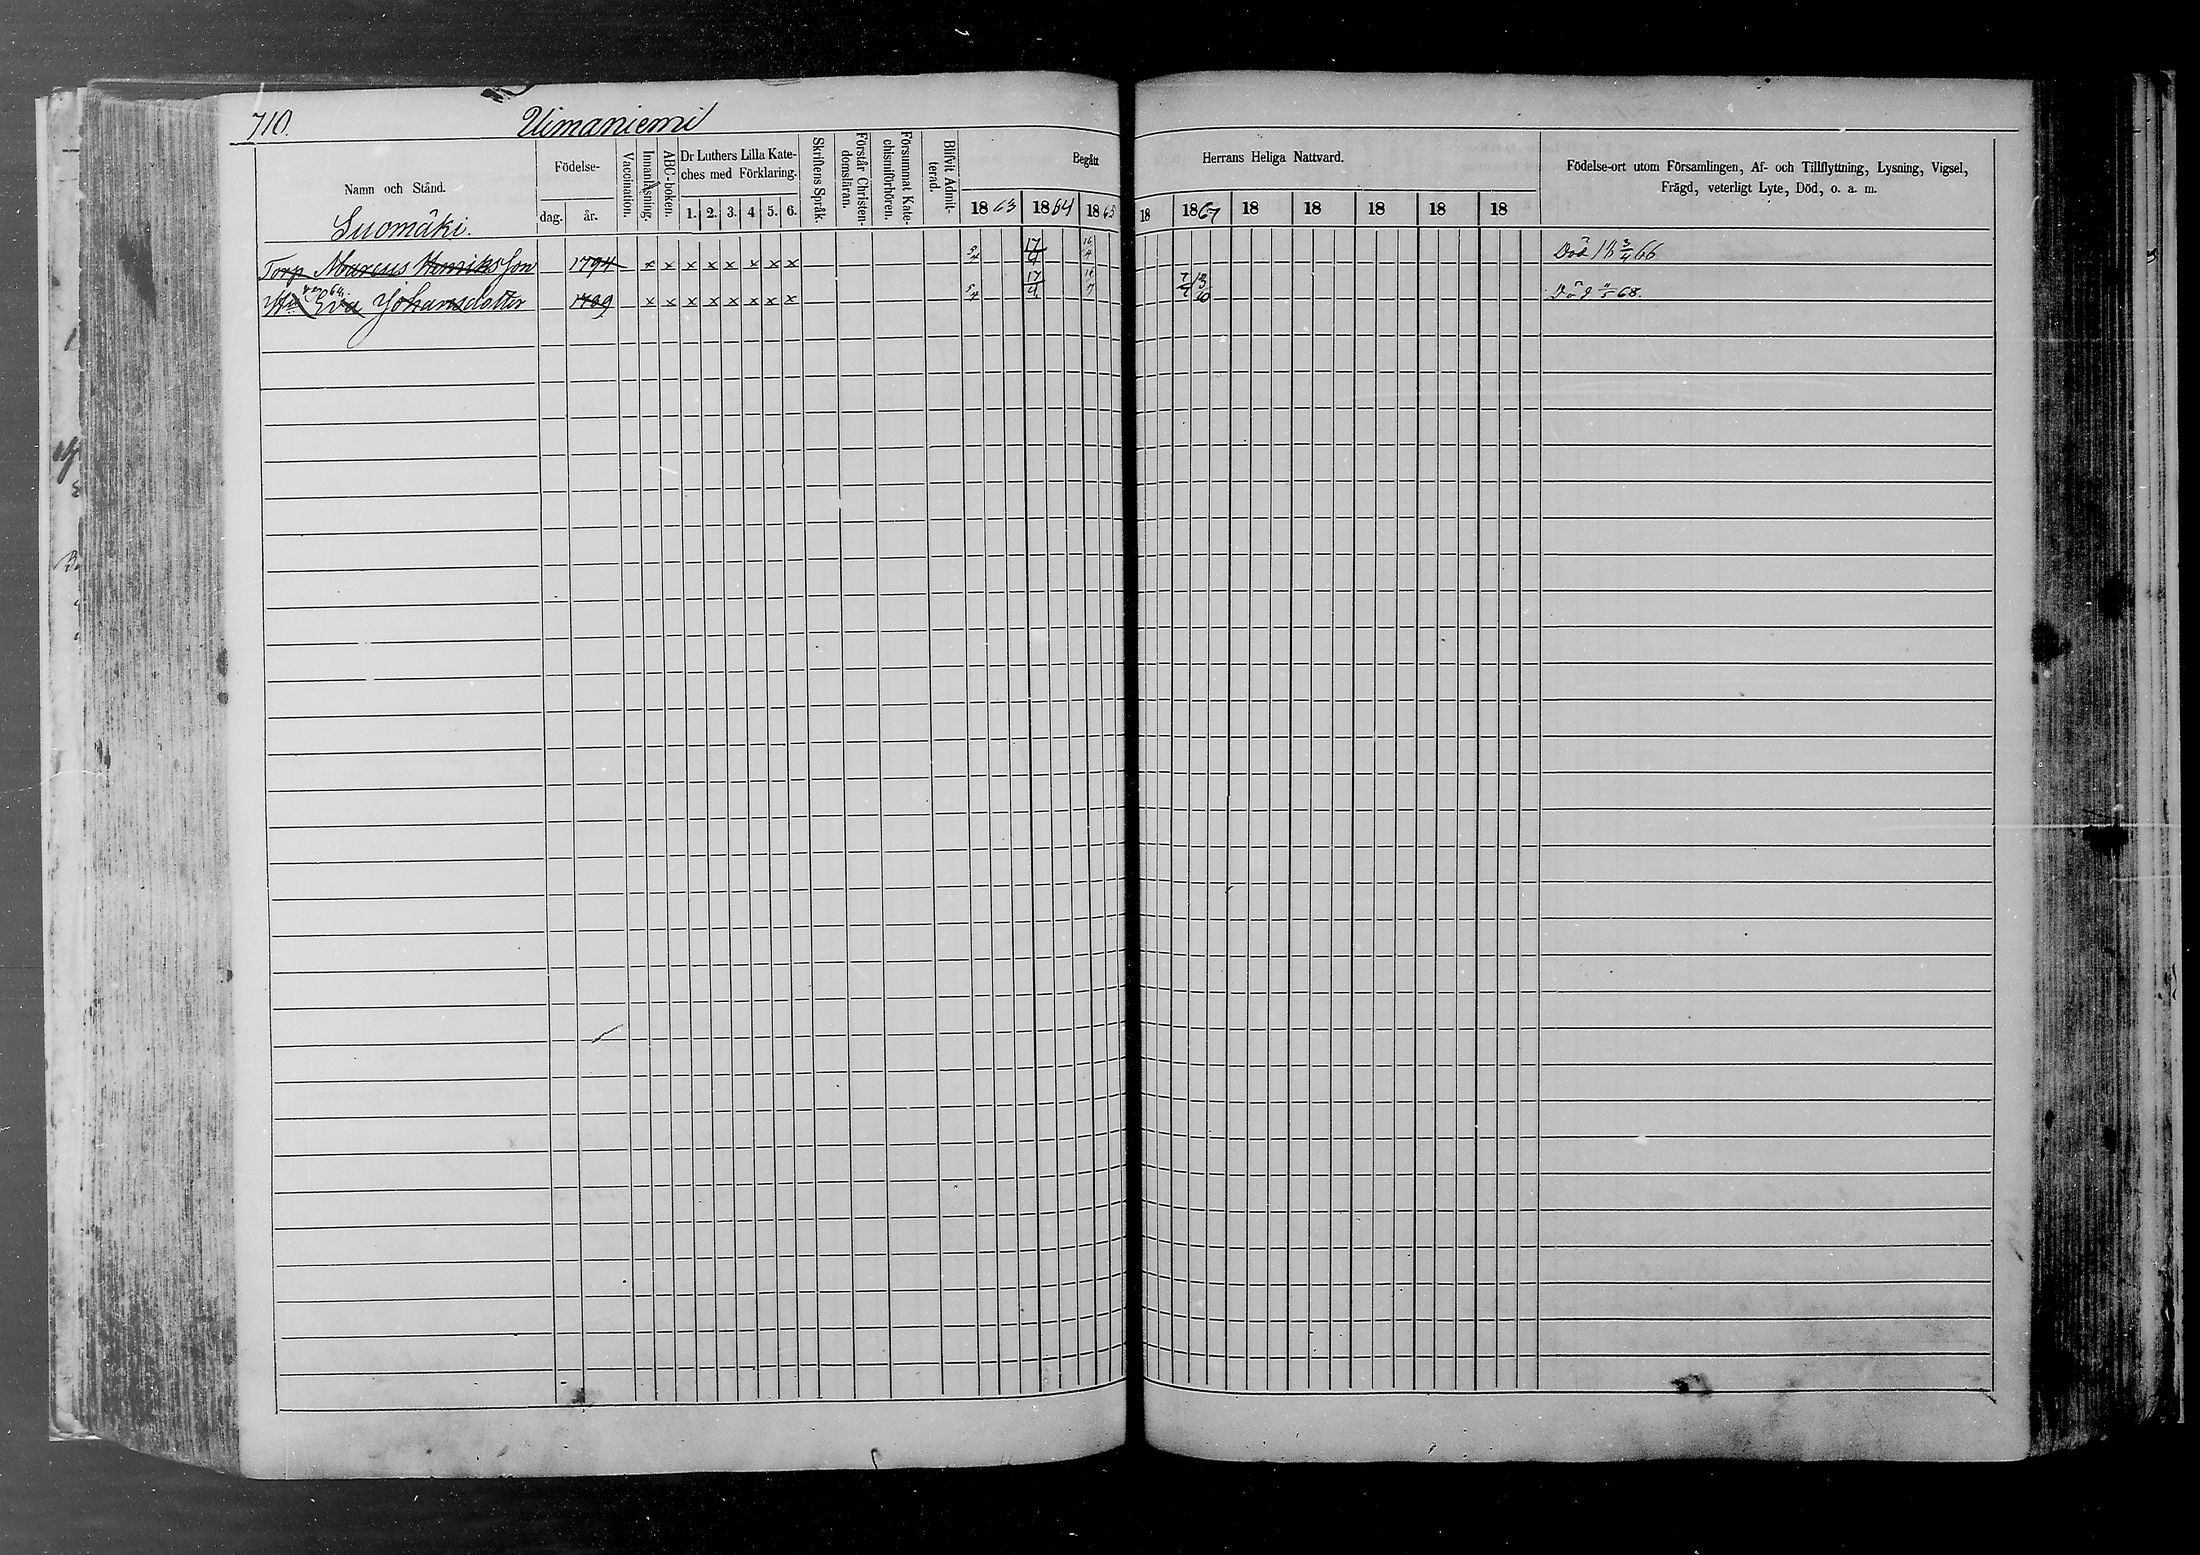 710.
Uimaniemi
Namn och Stånd.
Födelse-
dag.
år.
Vaccination.
Innanläsning.
ABC-boken.
Dr Luthers Lilla Kate-
ches med Förklaring.
1. 2. 3. 4 5. 6.
Skriftens Språk.
Förstår Christen-
domsläran.
Försummat Kate-
chismiförhören.
Blifvit Admit-
terad.
Begått
Herrans Heliga Nattvard.
1863 1864 1865 18 1867 18 18 18 18 18
Födelse-ort utom Församlingen, Af- och Tillflyttning, Lysning, Vigsel,
Frägd, veterligt Lyte, Död, o. a. m.
Suomäki.
Torp Marcus Henriksson 1794 x x x x x x x x 5/4 17/4 16/4 Död 3/4 66
Eva Johansdotter x x x x x x x x 5/4 17/4 16/7 Död 68.